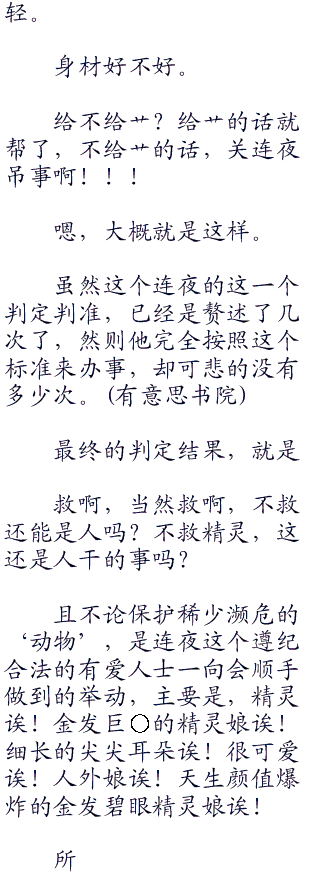 轻。
身材好不好。
给不给艹？给艹的话就
帮了，不给艹的话，关连夜
吊事啊！！！
嗯，大概就是这样。
虽然这个连夜的这一个
判定判准，已经是赘述了几
次了，然则他完全按照这个
标准来办事，却可悲的没有
多少次。(有意思书院)
最终的判定结果，就是
救啊，当然救啊，不救
还能是人吗？不救精灵，这
还是人干的事吗？
且不论保护稀少濒危的
‘动物’，是连夜这个遵纪
合法的有爱人士一向会顺手
做到的举动，主要是，精灵
诶！金发巨〇的精灵娘诶！
细长的尖尖耳朵诶！很可爱
诶！人外娘诶！天生颜值爆
炸的金发碧眼精灵娘诶！
所